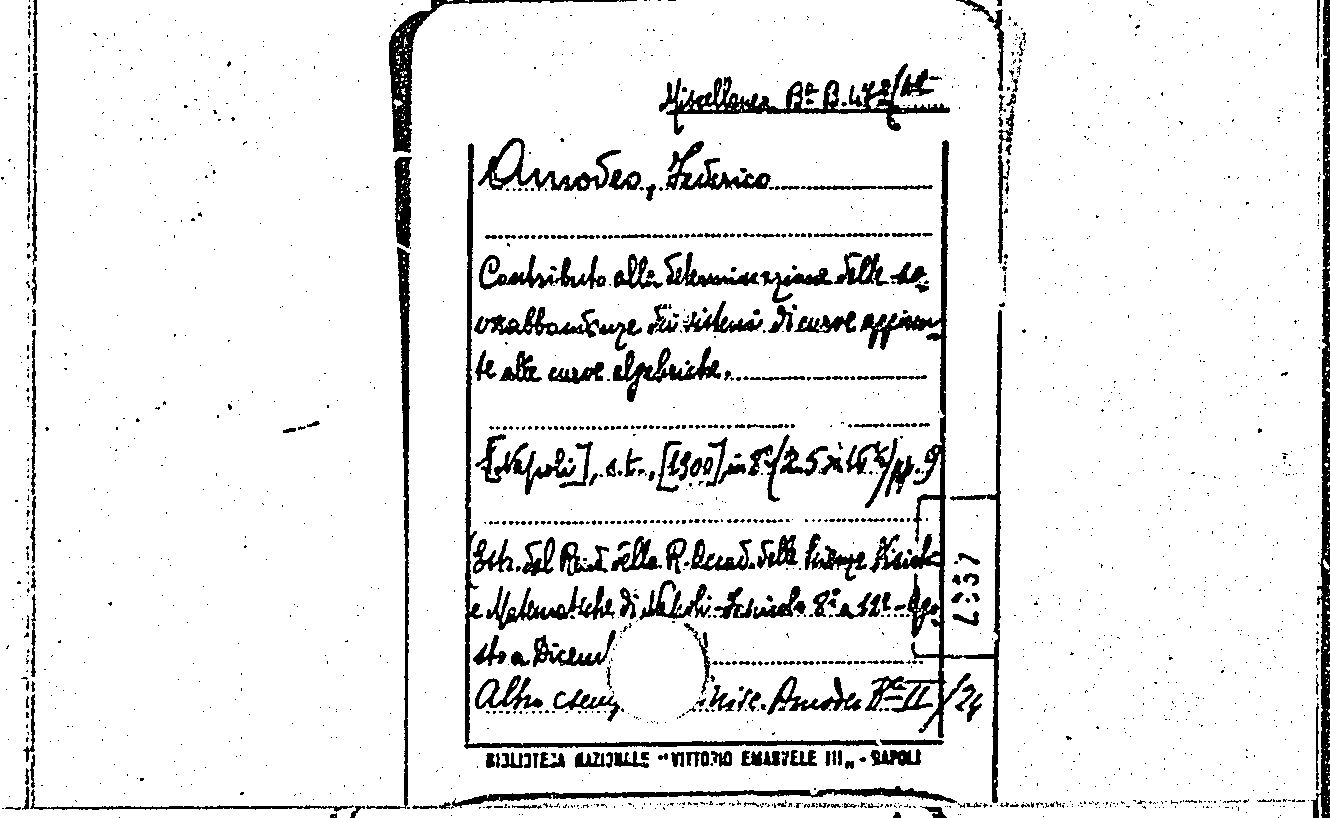 Miscellanea Bᵃ B. 472/12
Amodeo, Federico
Contributo alla determinazione delle so-
vrabbondanze dei sistemi di curve aggiun-
te alle curve algebriche.
[Napoli], s.t., [1900], in 8° (25x16½) pp. 9
Estr. dal Rend. della R. Accad. delle Scienze Fisiche
e Matematiche di Napoli - Fascicolo 8° a 12° - Ago-
sto a Dicem
Altro esemp Misc. Amodeo Bᵃ II/24
BIBLIOTECA NAZIONALE "VITTORIO EMANUELE III„ - NAPOLI